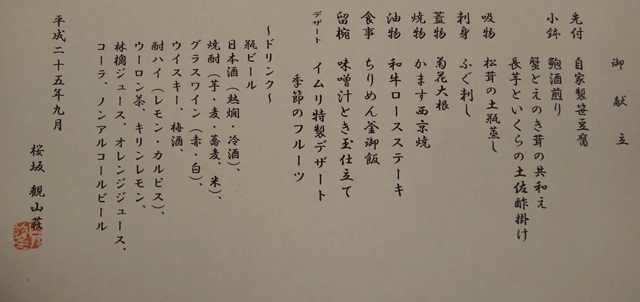 御献立
先付 自家製笹豆腐
小鉢 鮑酒煎り
蟹とえのき茸の共和え
長芋といくらの土佐酢掛け
吸物 松茸の土瓶蒸し
刺身 ふぐ刺し
蓋物 菊花大根
焼物 かます西京焼
油物 和牛ロースステーキ
食事 ちりめん釜御飯
留椀 味噌汁とき玉仕立て
デザート イムリ特製デザート
季節のフルーツ
～ドリンク～
瓶ビール
日本酒（熱燗・冷酒）、
焼酎（芋・麦・蕎麦、米）、
グラスワイン（赤・白）、
ウイスキー、梅酒、
酎ハイ（レモン・カルピス）、
ウーロン茶、キリンレモン、
林檎ジュース、オレンジジュース、
コーラ、ノンアルコールビール
平成二十五年九月
桜坂 観山荘